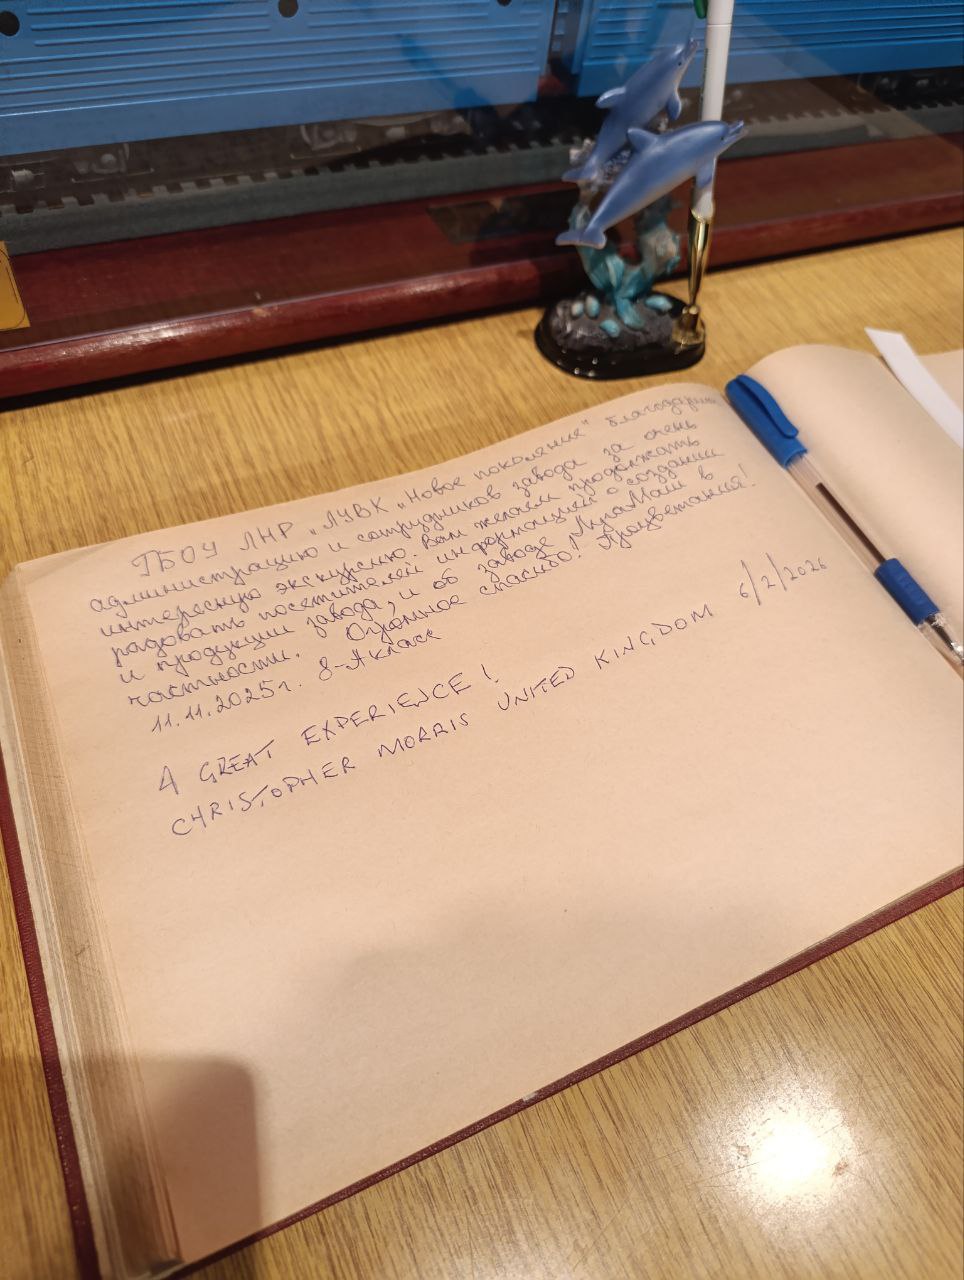 ГБОУ ЛНР „ЛУВК „Новое поколение" благодарит
администрацию и сотрудников завода за очень
интересную экскурсию. Вам желаем продолжать
радовать посетителей информацией о создании
и продукции завода, и об заводе ЛугаМаш в
частности. Огромное спасибо! Процветания!
11.11.2025г. 8-А класс
A GREAT EXPERIENCE!
CHRISTOPHER MORRIS UNITED KINGDOM 6/2/2026